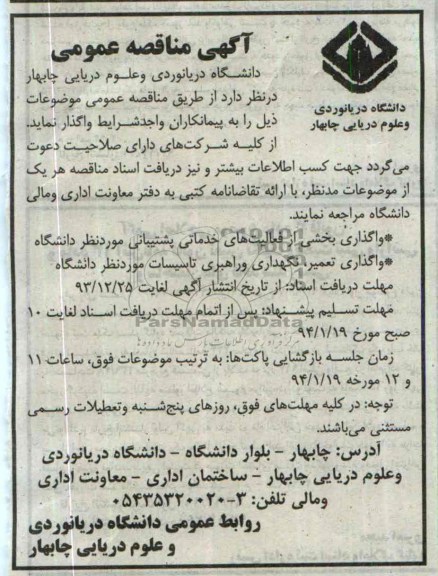 آگهی مناقصه عمومی
دانشگاه دریانوردی
وعلوم دریایی چابهار
دانشگاه دریانوردی وعلوم دریایی چابهار
درنظر دارد از طریق مناقصه عمومی موضوعات
ذیل را به پیمانکاران واجدشرایط واگذار نماید.
از کلیه شرکت‌های دارای صلاحیت دعوت
می‌گردد جهت کسب اطلاعات بیشتر و نیز دریافت اسناد مناقصه هر یک
از موضوعات مدنظر، با ارائه تقاضانامه کتبی به دفتر معاونت اداری ومالی
دانشگاه مراجعه نمایند.
*واگذاری بخشی از فعالیت‌های خدماتی پشتیبانی موردنظر دانشگاه
*واگذاری تعمیر، نگهداری وراهبری تاسیسات موردنظر دانشگاه
مهلت دریافت اسناد: از تاریخ انتشار آگهی لغایت ۹۳/۱۲/۲۵
مهلت تسلیم پیشنهاد: پس از اتمام مهلت دریافت اسناد لغایت ۱۰
صبح مورخ ۹۴/۱/۱۹
ParsNamadData
زمان جلسه بازگشایی پاکت‌ها: به ترتیب موضوعات فوق، ساعات ۱۱
و ۱۲ مورخه ۹۴/۱/۱۹
توجه: در کلیه مهلت‌های فوق، روزهای پنج‌شنبه وتعطیلات رسمی
مستثنی می‌باشند.
آدرس: چابهار - بلوار دانشگاه - دانشگاه دریانوردی
وعلوم دریایی چابهار - ساختمان اداری - معاونت اداری
ومالی تلفن: ۳-۰۵۴۳۵۳۲۰۰۲۰
روابط عمومی دانشگاه دریانوردی
و علوم دریایی چابهار